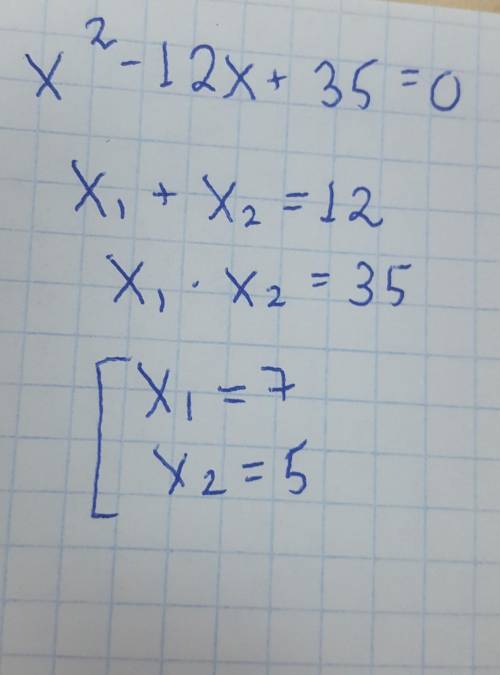 x² - 12x + 35 = 0
x₁ + x₂ = 12
x₁ · x₂ = 35
[ x₁ = 7
x₂ = 5